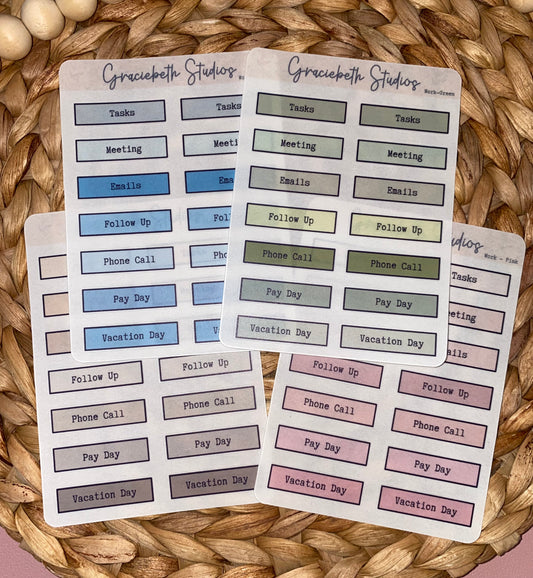 Graciebeth Studios
Wo
Tasks Tasks
Meeting Meeting
Emails Emails
Follow Up Follow
Phone Call Phone
Pay Day Pay
Vacation Day Vacat
Graciebeth Studios
Work-Green
Tasks Tasks
Meeting Meeting
Emails Emails
Follow Up Follow Up
Phone Call Phone Call
Pay Day Pay Day
Vacation Day Vacation Day
Follow Up Follow Up
Phone Call Phone Call
Pay Day Pay Day
Vacation Day Vacation Day
Studios
Work - Pink
Tasks
eeting
mails
Follow Up Follow Up
Phone Call Phone Call
Pay Day Pay Day
Vacation Day Vacation Day